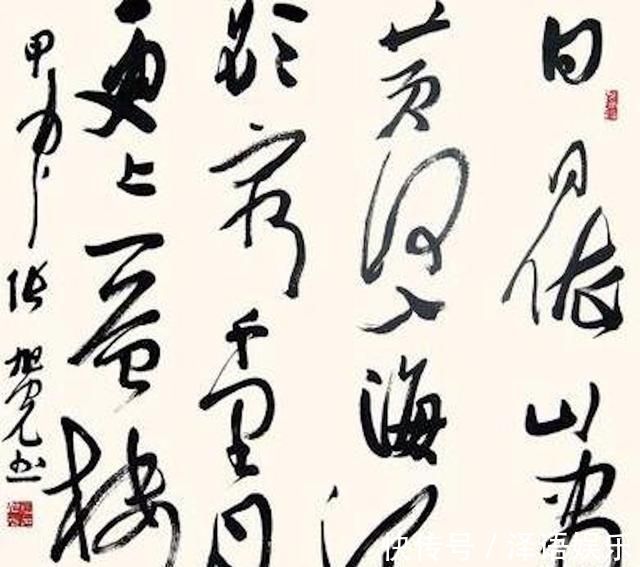 白日依山尽
黄河入海流
欲穷千里目
更上一层楼
甲午张旭光书
快传号 / 泽语娱乐